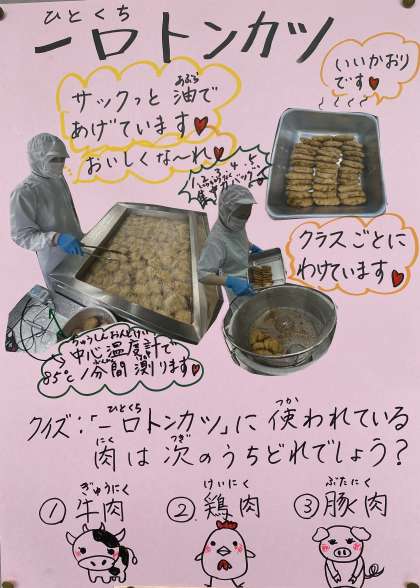 ひとくち
一口トンカツ
いいかおり
です♥
サックっと油で
あぶら
あげています♥
おいしくな〜れ♥
1、2、3、4、5
クラスごとに
わけています♥
ちゅうしんおんどけい
中心温度計で
85℃1分間測ります♥
クイズ:「一口トンカツ」に使われている
ひとくち
つか
肉は次のうちどれでしょう?
にく
つぎ
ぎゅうにく
①牛肉
けいにく
②鶏肉
ぶたにく
③豚肉